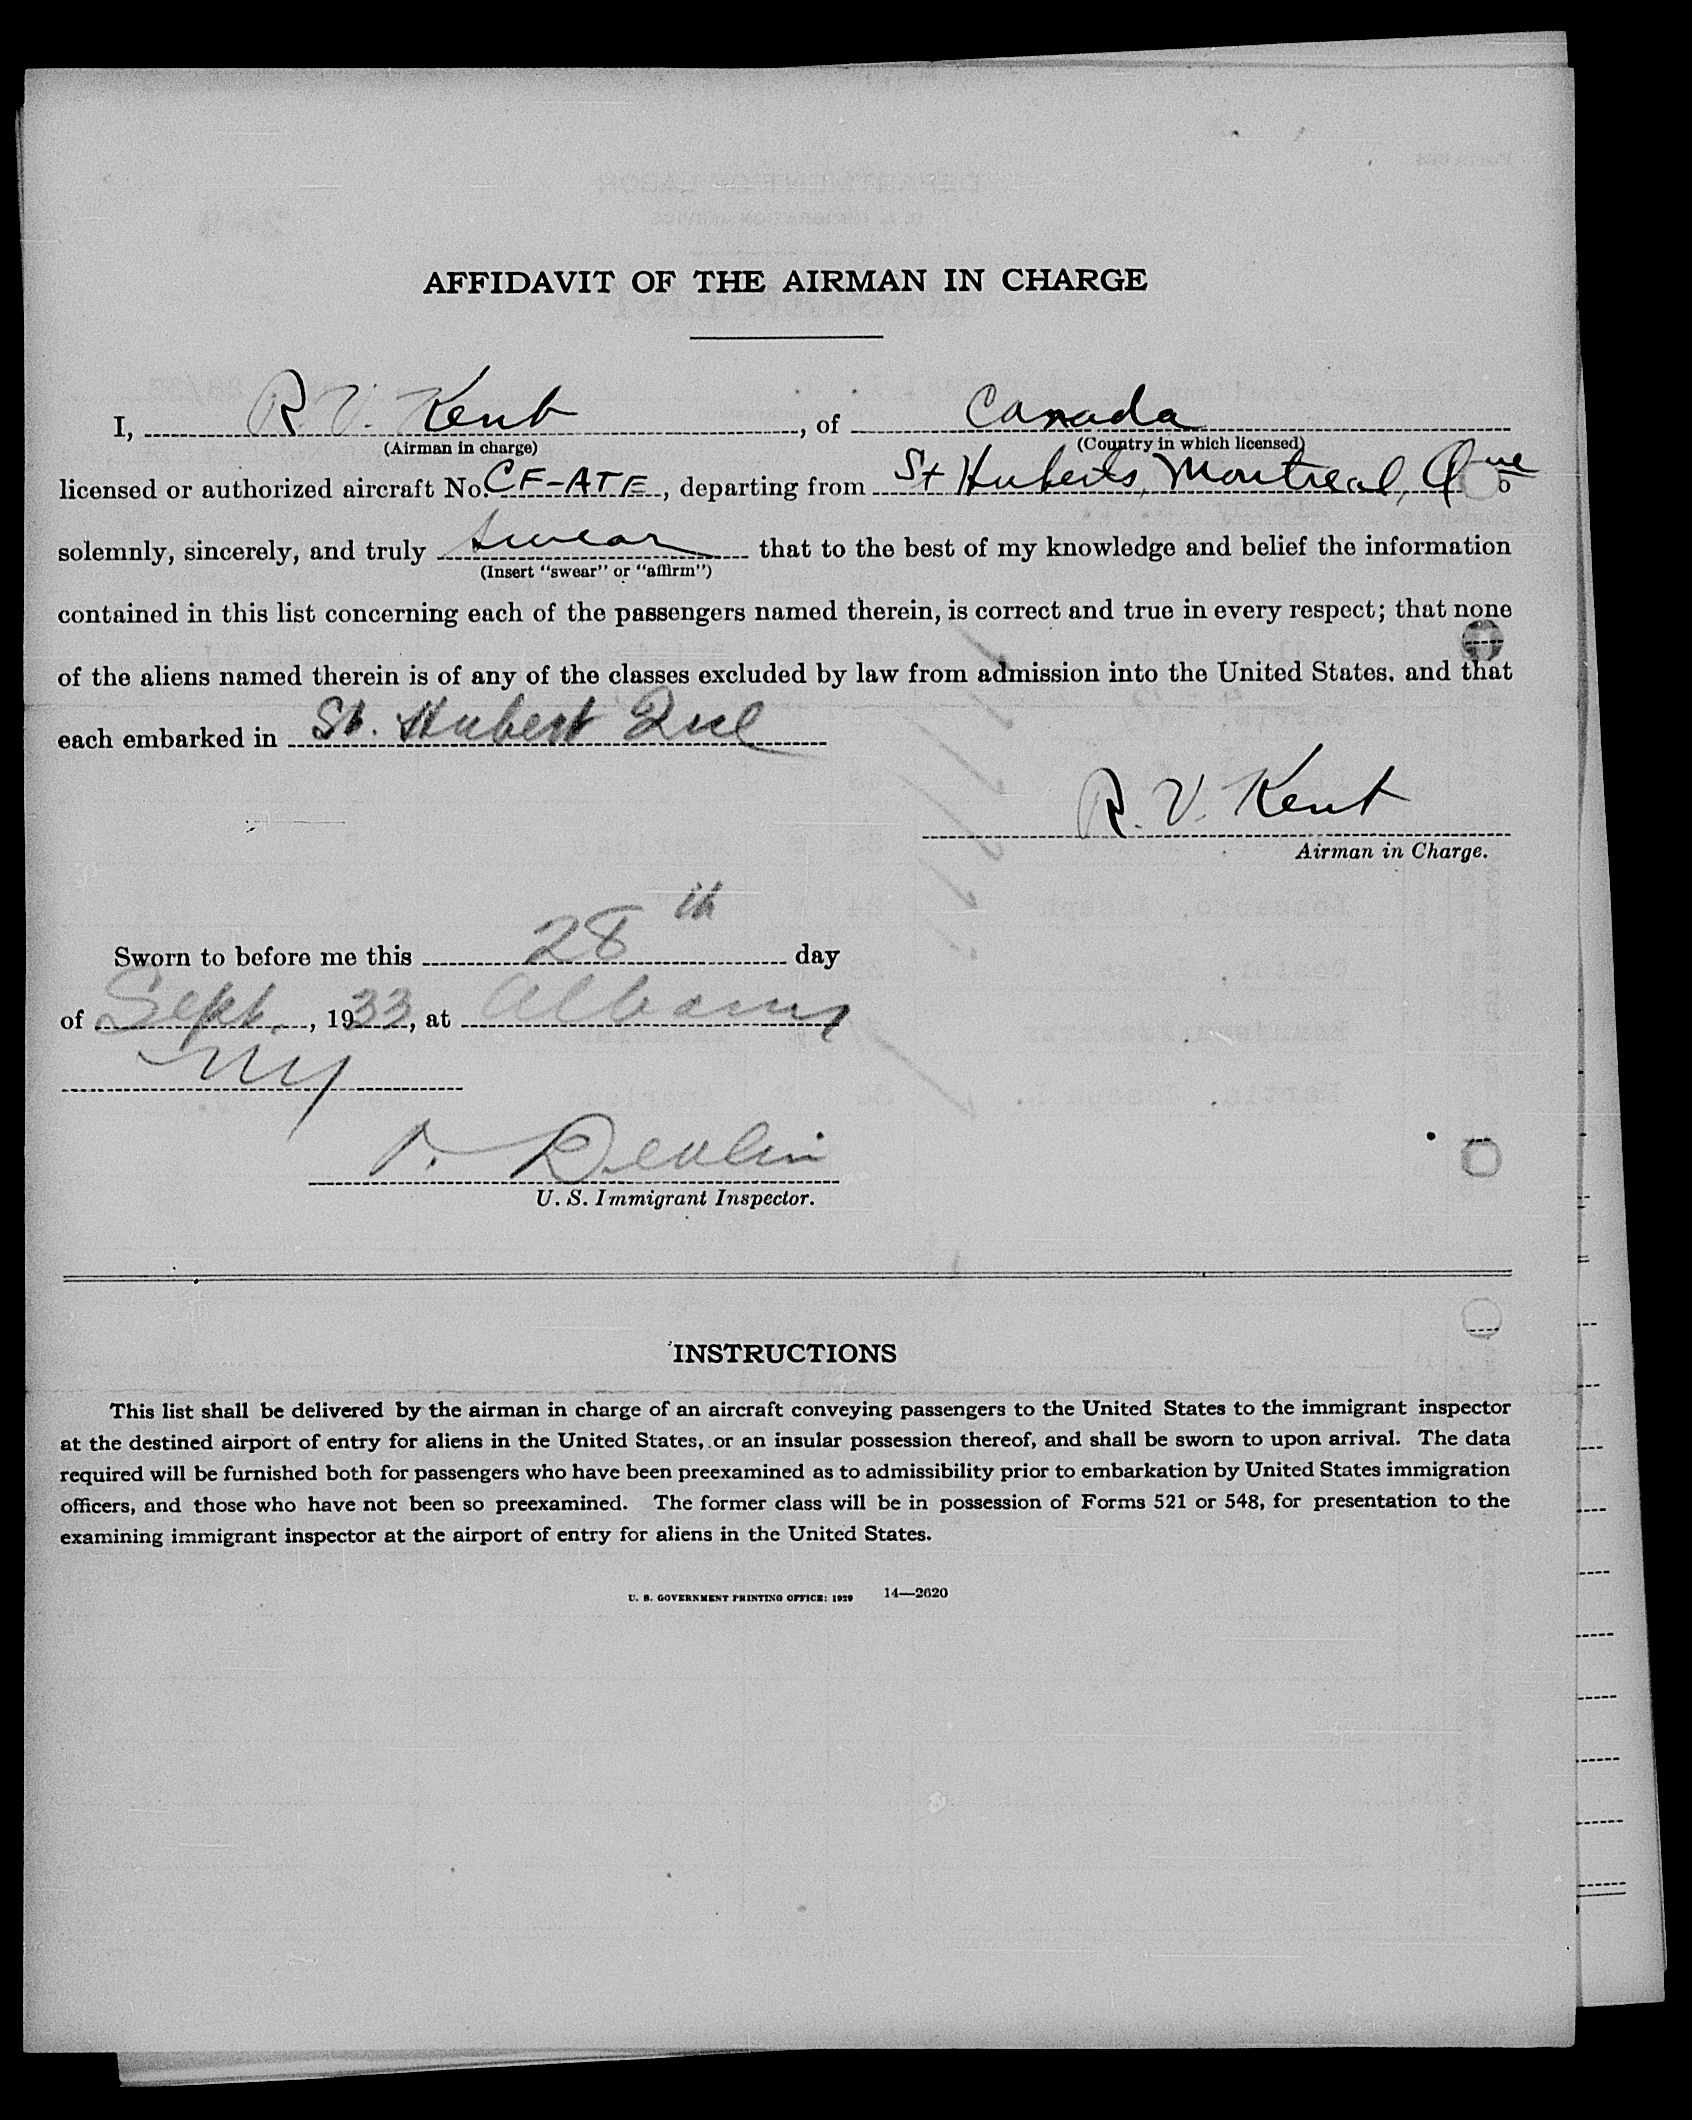 AFFIDAVIT OF THE AIRMAN IN CHARGE
I, R. V. Kent, of Canada
(Airman in charge) (Country in which licensed)
licensed or authorized aircraft No. CF-ATE, departing from St Huberts, Montreal, Que
solemnly, sincerely, and truly swear that to the best of my knowledge and belief the information
(Insert "swear" or "affirm")
contained in this list concerning each of the passengers named therein, is correct and true in every respect; that none
of the aliens named therein is of any of the classes excluded by law from admission into the United States, and that
each embarked in St. Hubert Que
R. V. Kent
Airman in Charge.
Sworn to before me this 28th day
of Sept., 1933, at Albany
NY
Devlin
U. S. Immigrant Inspector.
INSTRUCTIONS
This list shall be delivered by the airman in charge of an aircraft conveying passengers to the United States to the immigrant inspector
at the destined airport of entry for aliens in the United States, or an insular possession thereof, and shall be sworn to upon arrival. The data
required will be furnished both for passengers who have been preexamined as to admissibility prior to embarkation by United States immigration
officers, and those who have not been so preexamined. The former class will be in possession of Forms 521 or 548, for presentation to the
examining immigrant inspector at the airport of entry for aliens in the United States.
U. S. GOVERNMENT PRINTING OFFICE: 1929 14—2620